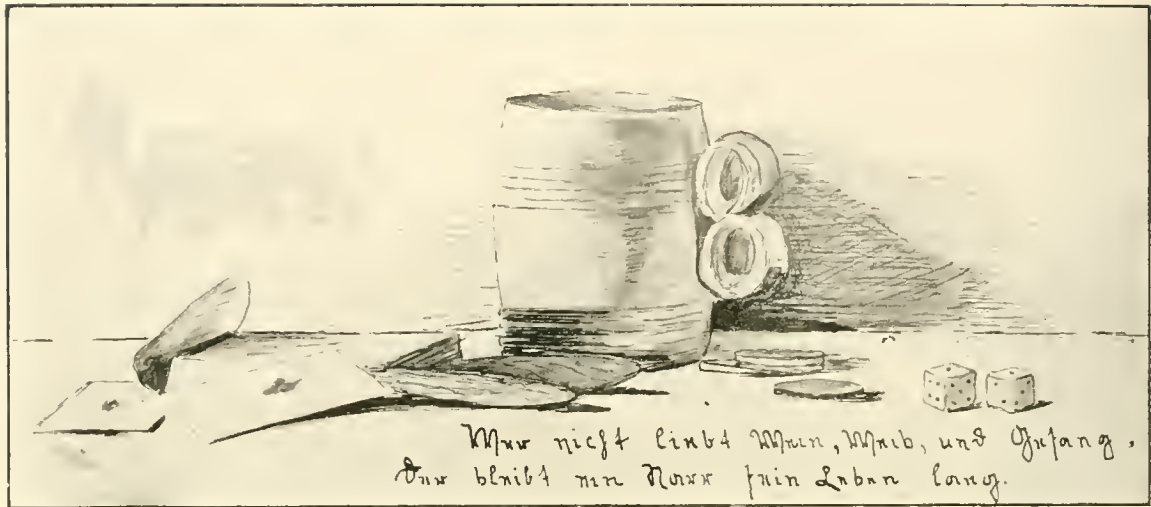 Wer nicht liebt Wein, Weib, und Gesang,
Der bleibt ein Narr sein Leben lang.